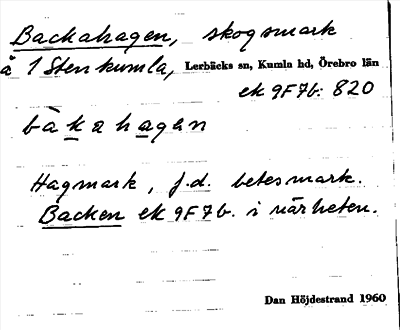 Backahagen, skogsmark
å 1 Stenkumla, Lerbäcks sn, Kumla hd, Örebro län
ek 9F7b: 820
bàkahagan
Hagmark, f.d. betesmark.
Backen ek 9F7b. i närheten.
Dan Höjdestrand 1960